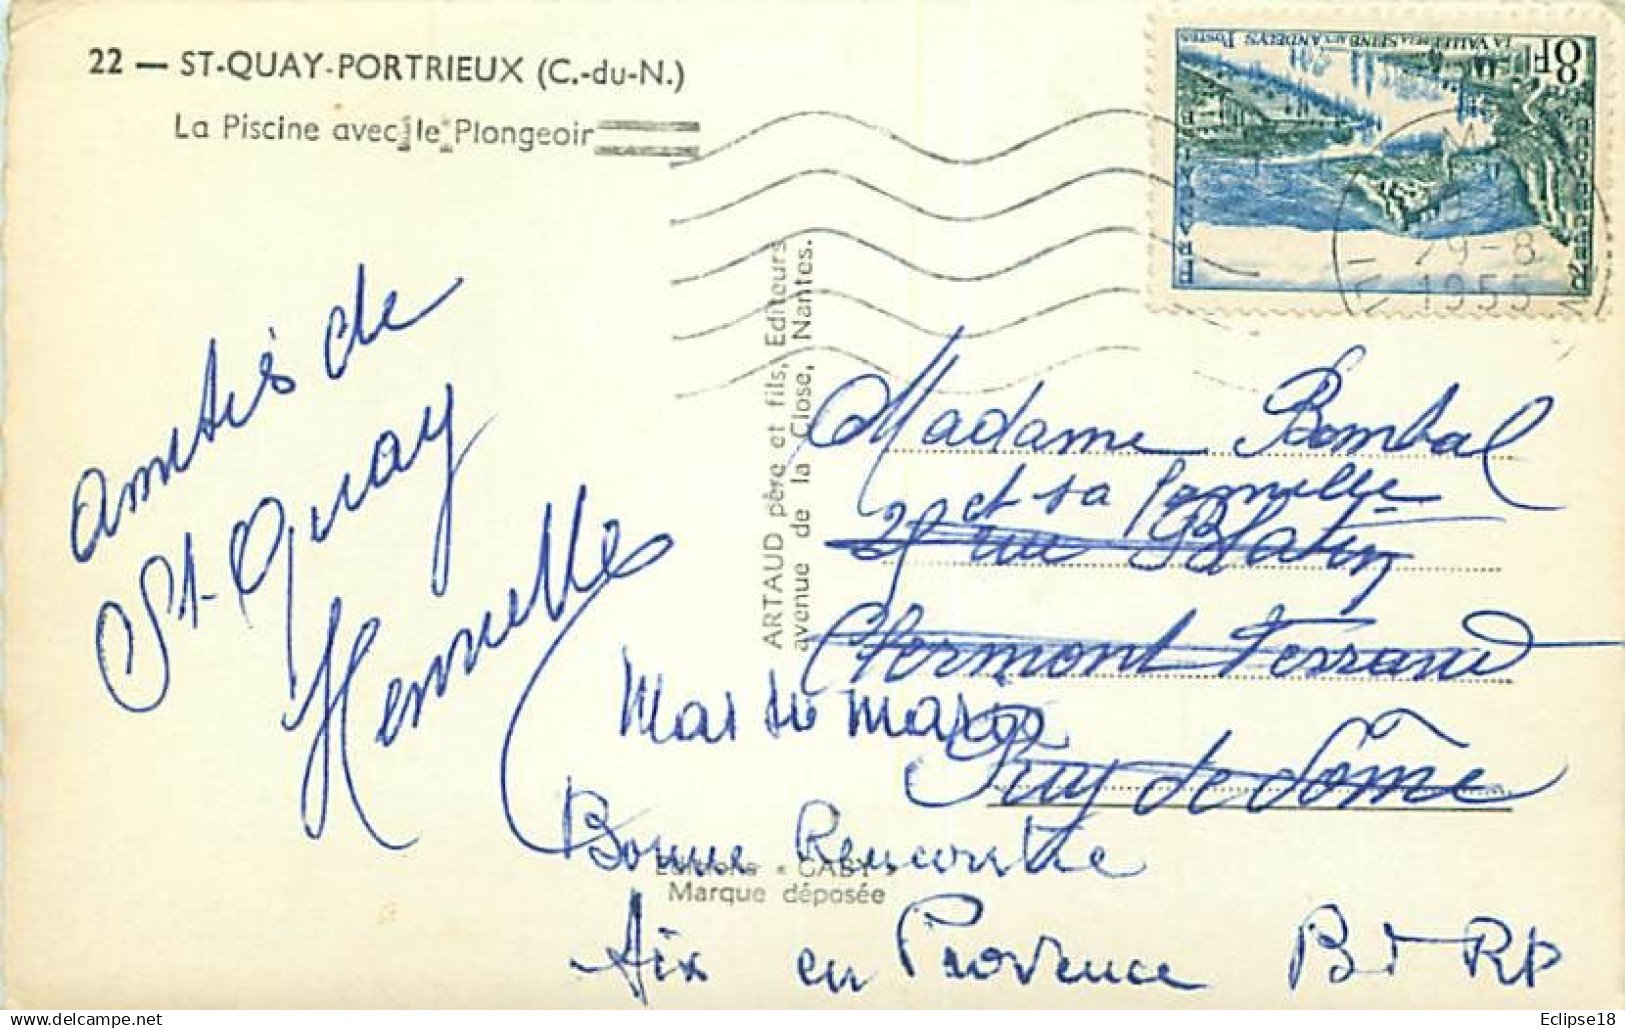 22 — ST-QUAY-PORTRIEUX (C.-du-N.)
La Piscine avec le Plongeoir
LA VALLÉE DE LA SEINE AUX ANDELYS POSTES
8F
29-8
1955
ARTAUD père et fils, Editeurs
avenue de la Close, Nantes.
amitiés de
St. Quay
Madame Bombal
et sa famille
rue Blatin
Clermont Ferrand
Puy de Dôme
Bonne Rencontre
Aix en Provence B d R
Editions « GABY »
Marque déposée
https://www.delcampe.net
Eclipse18